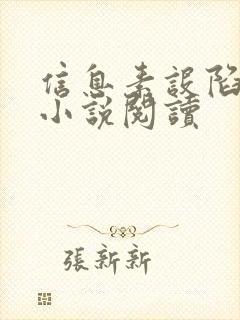 信息素誤陷
小說閱讀
張新新